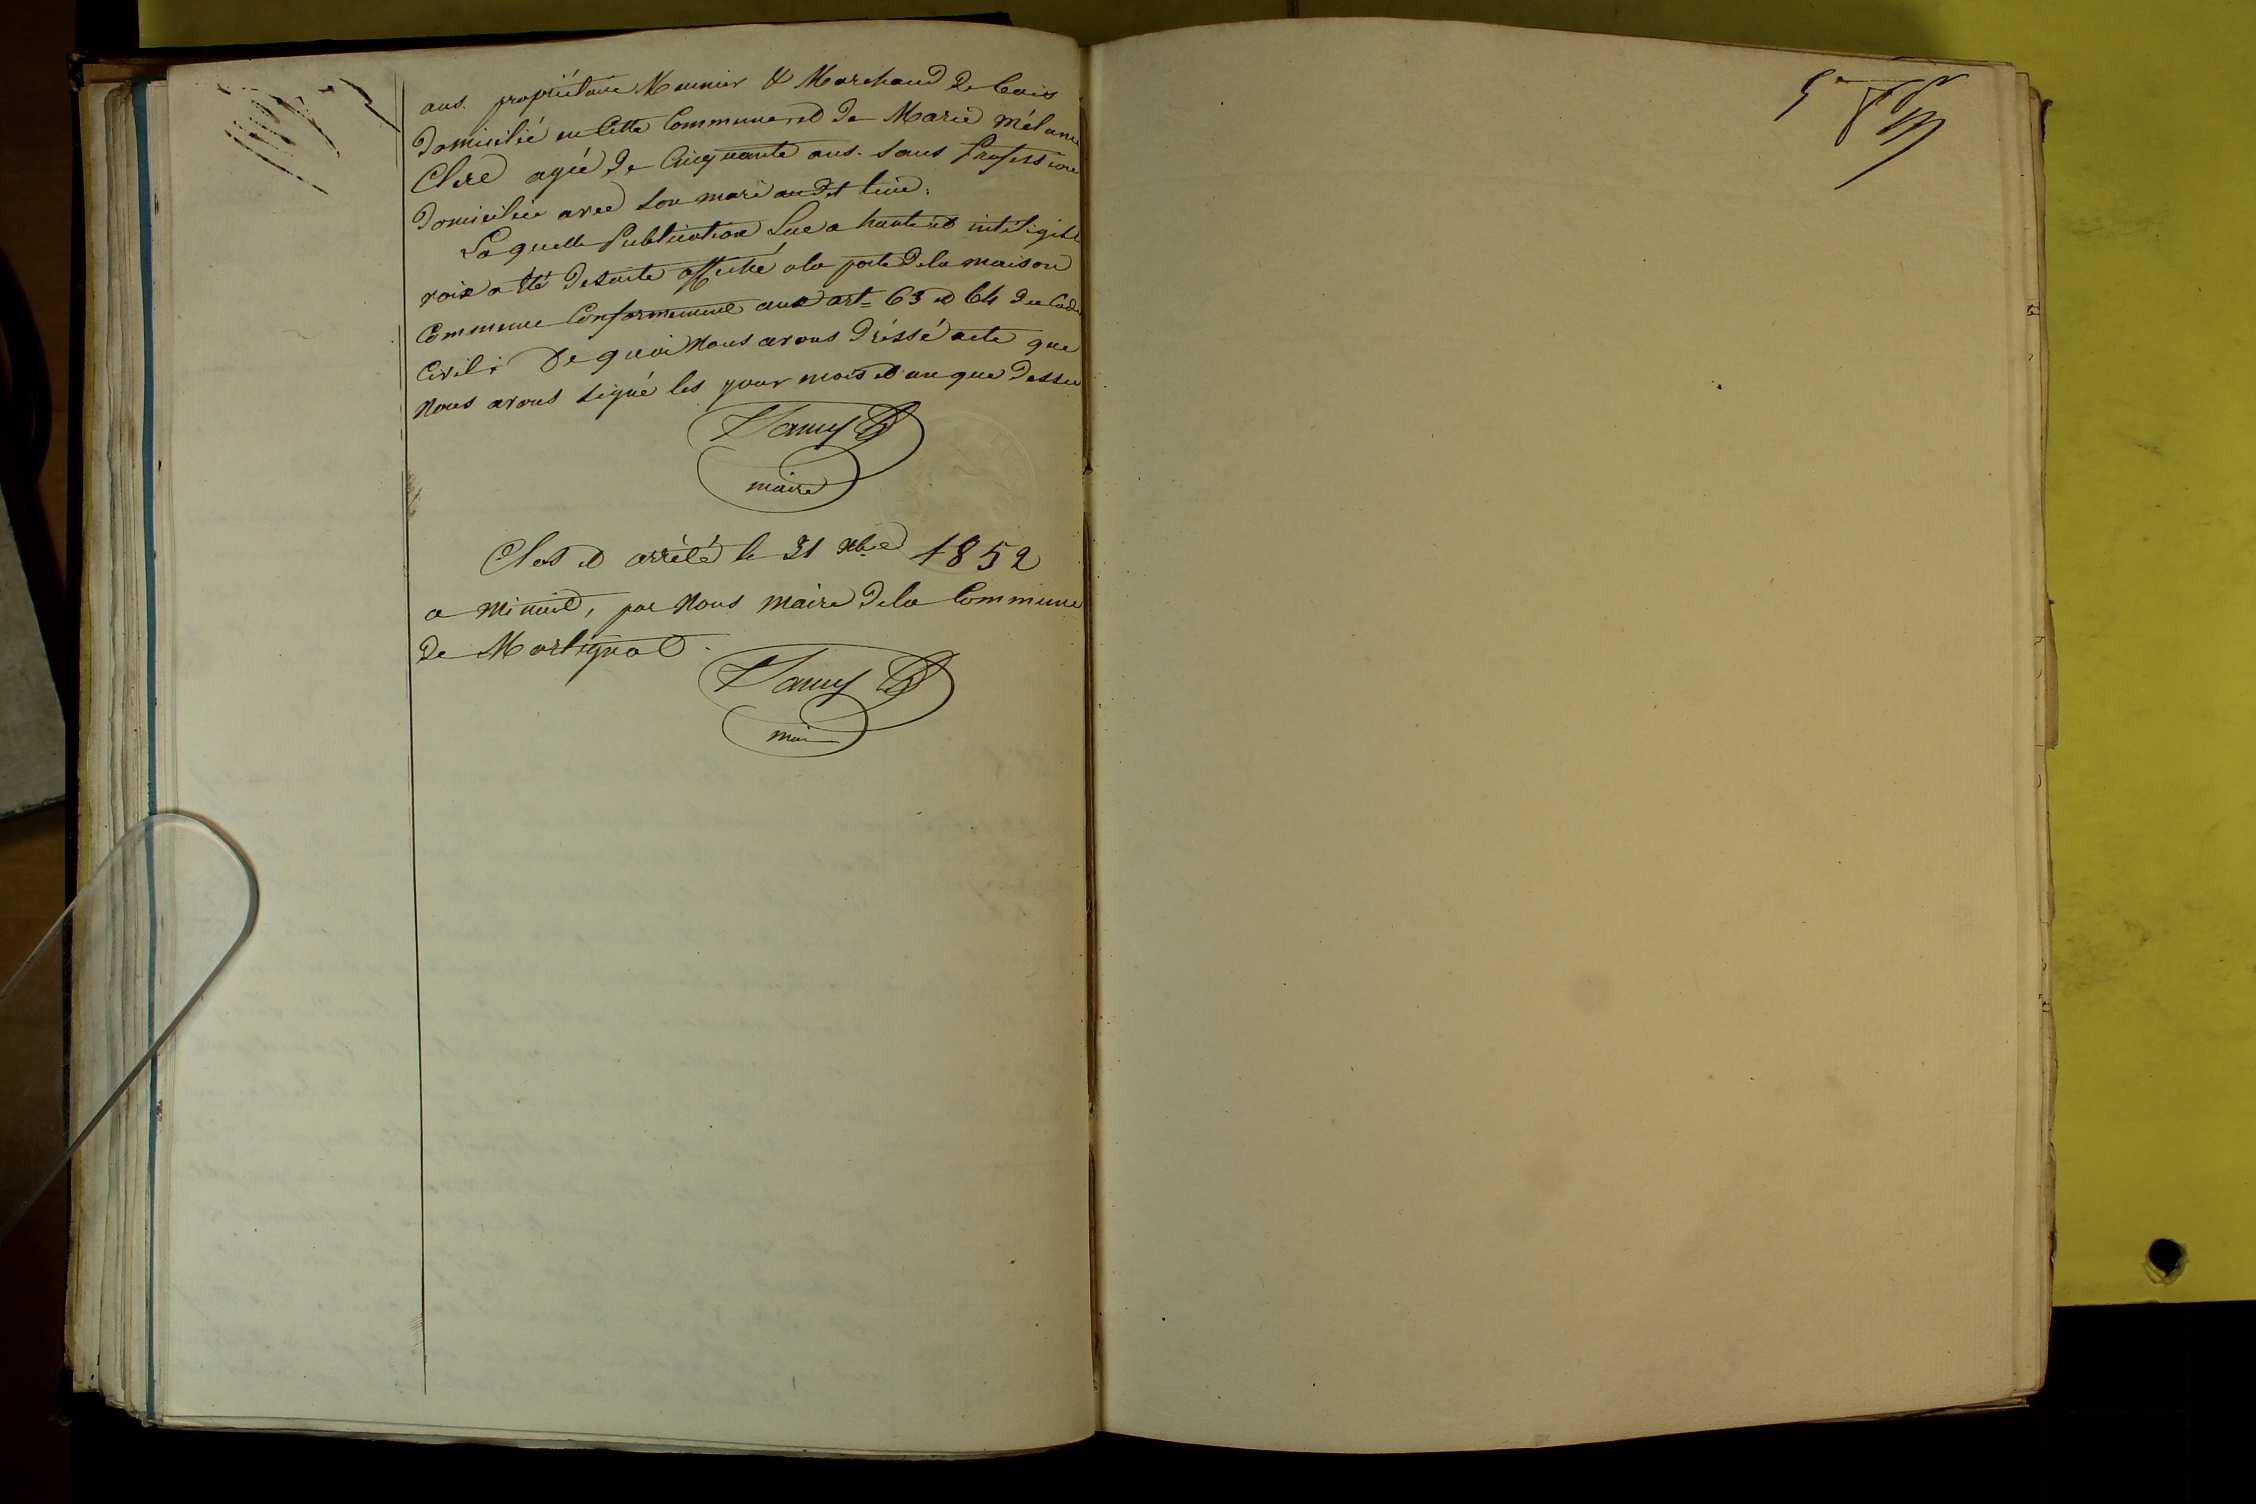 ans. propriétaire Meunier & Marchand de bois
domicilié en cette Commune et de Marie Mélanie
Clerc agée de Cinquante ans. sans Profession
domiciliée avec son mari audit lieu.
Laquelle Publication Lue a haute et inteligible
voix a été desuite affiché a la porte de la maison
Commune Conformement aux art= 63 et 64 du Code
Civil: De quoi Nous avons dréssé acte que
Nous avons signé les jour mois et an que dessus
maire
Clos et arrèté le 31 Xbre 1852
a Minuit, par Nous Maire de la Commune
de Martignat.
mai